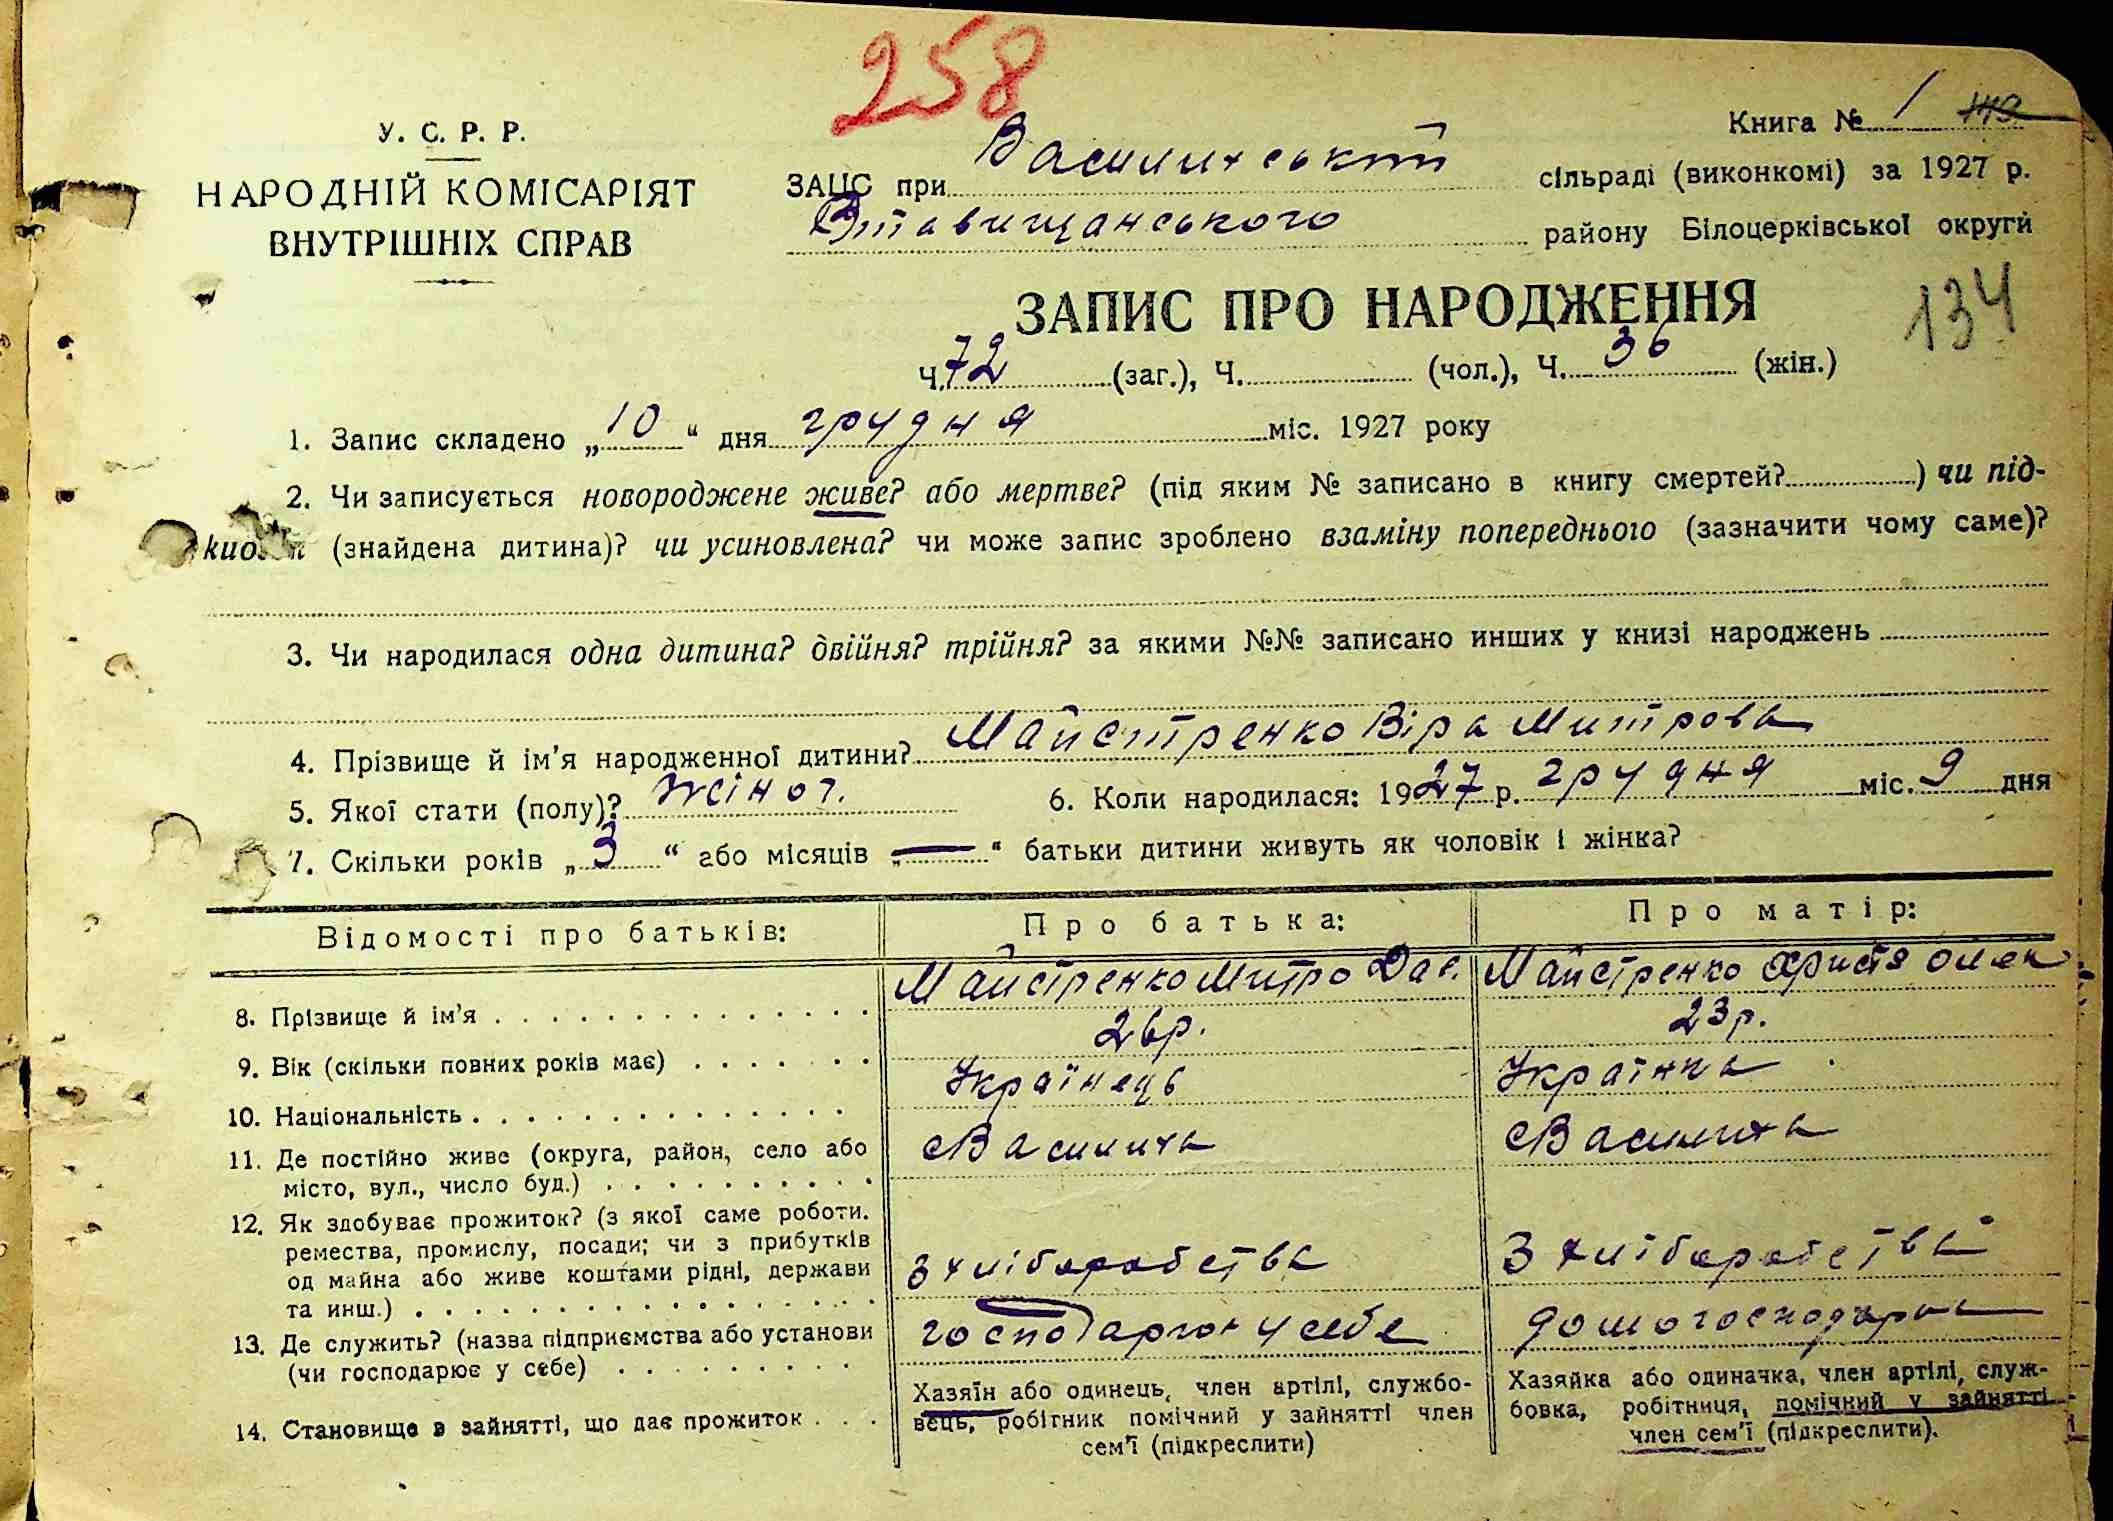 258
Книга № 1
У. С. Р. Р.
НАРОДНІЙ КОМІСАРІЯТ
ВНУТРІШНІХ СПРАВ
ЗАЦС при Василихській сільраді (виконкомі) за 1927 р.
Ставищанського району Білоцерківської округи
ЗАПИС ПРО НАРОДЖЕННЯ
134
Ч. 72 (заг.), Ч. (чол.), Ч. 36 (жін.)
1. Запис складено „10“ дня грудня міс. 1927 року
2. Чи записується новороджене живе? або мертве? (під яким № записано в книгу смертей? ) чи під-
(знайдена дитина)? чи усиновлена? чи може запис зроблено взаміну попереднього (зазначити чому саме)?
3. Чи народилася одна дитина? двійня? трійня? за якими №№ записано инших у книзі народжень
4. Прізвище й ім’я народженної дитини? Майстренко Віра Митрова
5. Якої стати (полу)? жіноч. 6. Коли народилася: 1927 р. грудня міс. 9 дня
7. Скільки років „3“ або місяців „—“ батьки дитини живуть як чоловік і жінка?
Відомості про батьків: Про батька: Про матір:
8. Прізвище й ім’я Майстренко Митро Майстренко Христя Олек
9. Вік (скільки повних років має) 26р. 23р.
10. Національність Українець Українка
11. Де постійно живе (округа, район, село або
місто, вул., число буд.) с Василиха с Василиха
12. Як здобуває прожиток? (з якої саме роботи.
ремества, промислу, посади; чи з прибутків
од майна або живе коштами рідні, держави
та инш.) З хліборобства З хліборобства
13. Де служить? (назва підприємства або установи
(чи господарює у себе) господарюн у себе домогосподарка
14. Становище в зайнятті, що дає прожиток
Хазяїн або одинець, член артілі, службо-
вець, робітник помічний у зайнятті член
сем’ї (підкреслити)
Хазяйка або одиначка, член артілі, служ-
бовка, робітниця, помічний у зайнятті
член сем’ї (підкреслити).